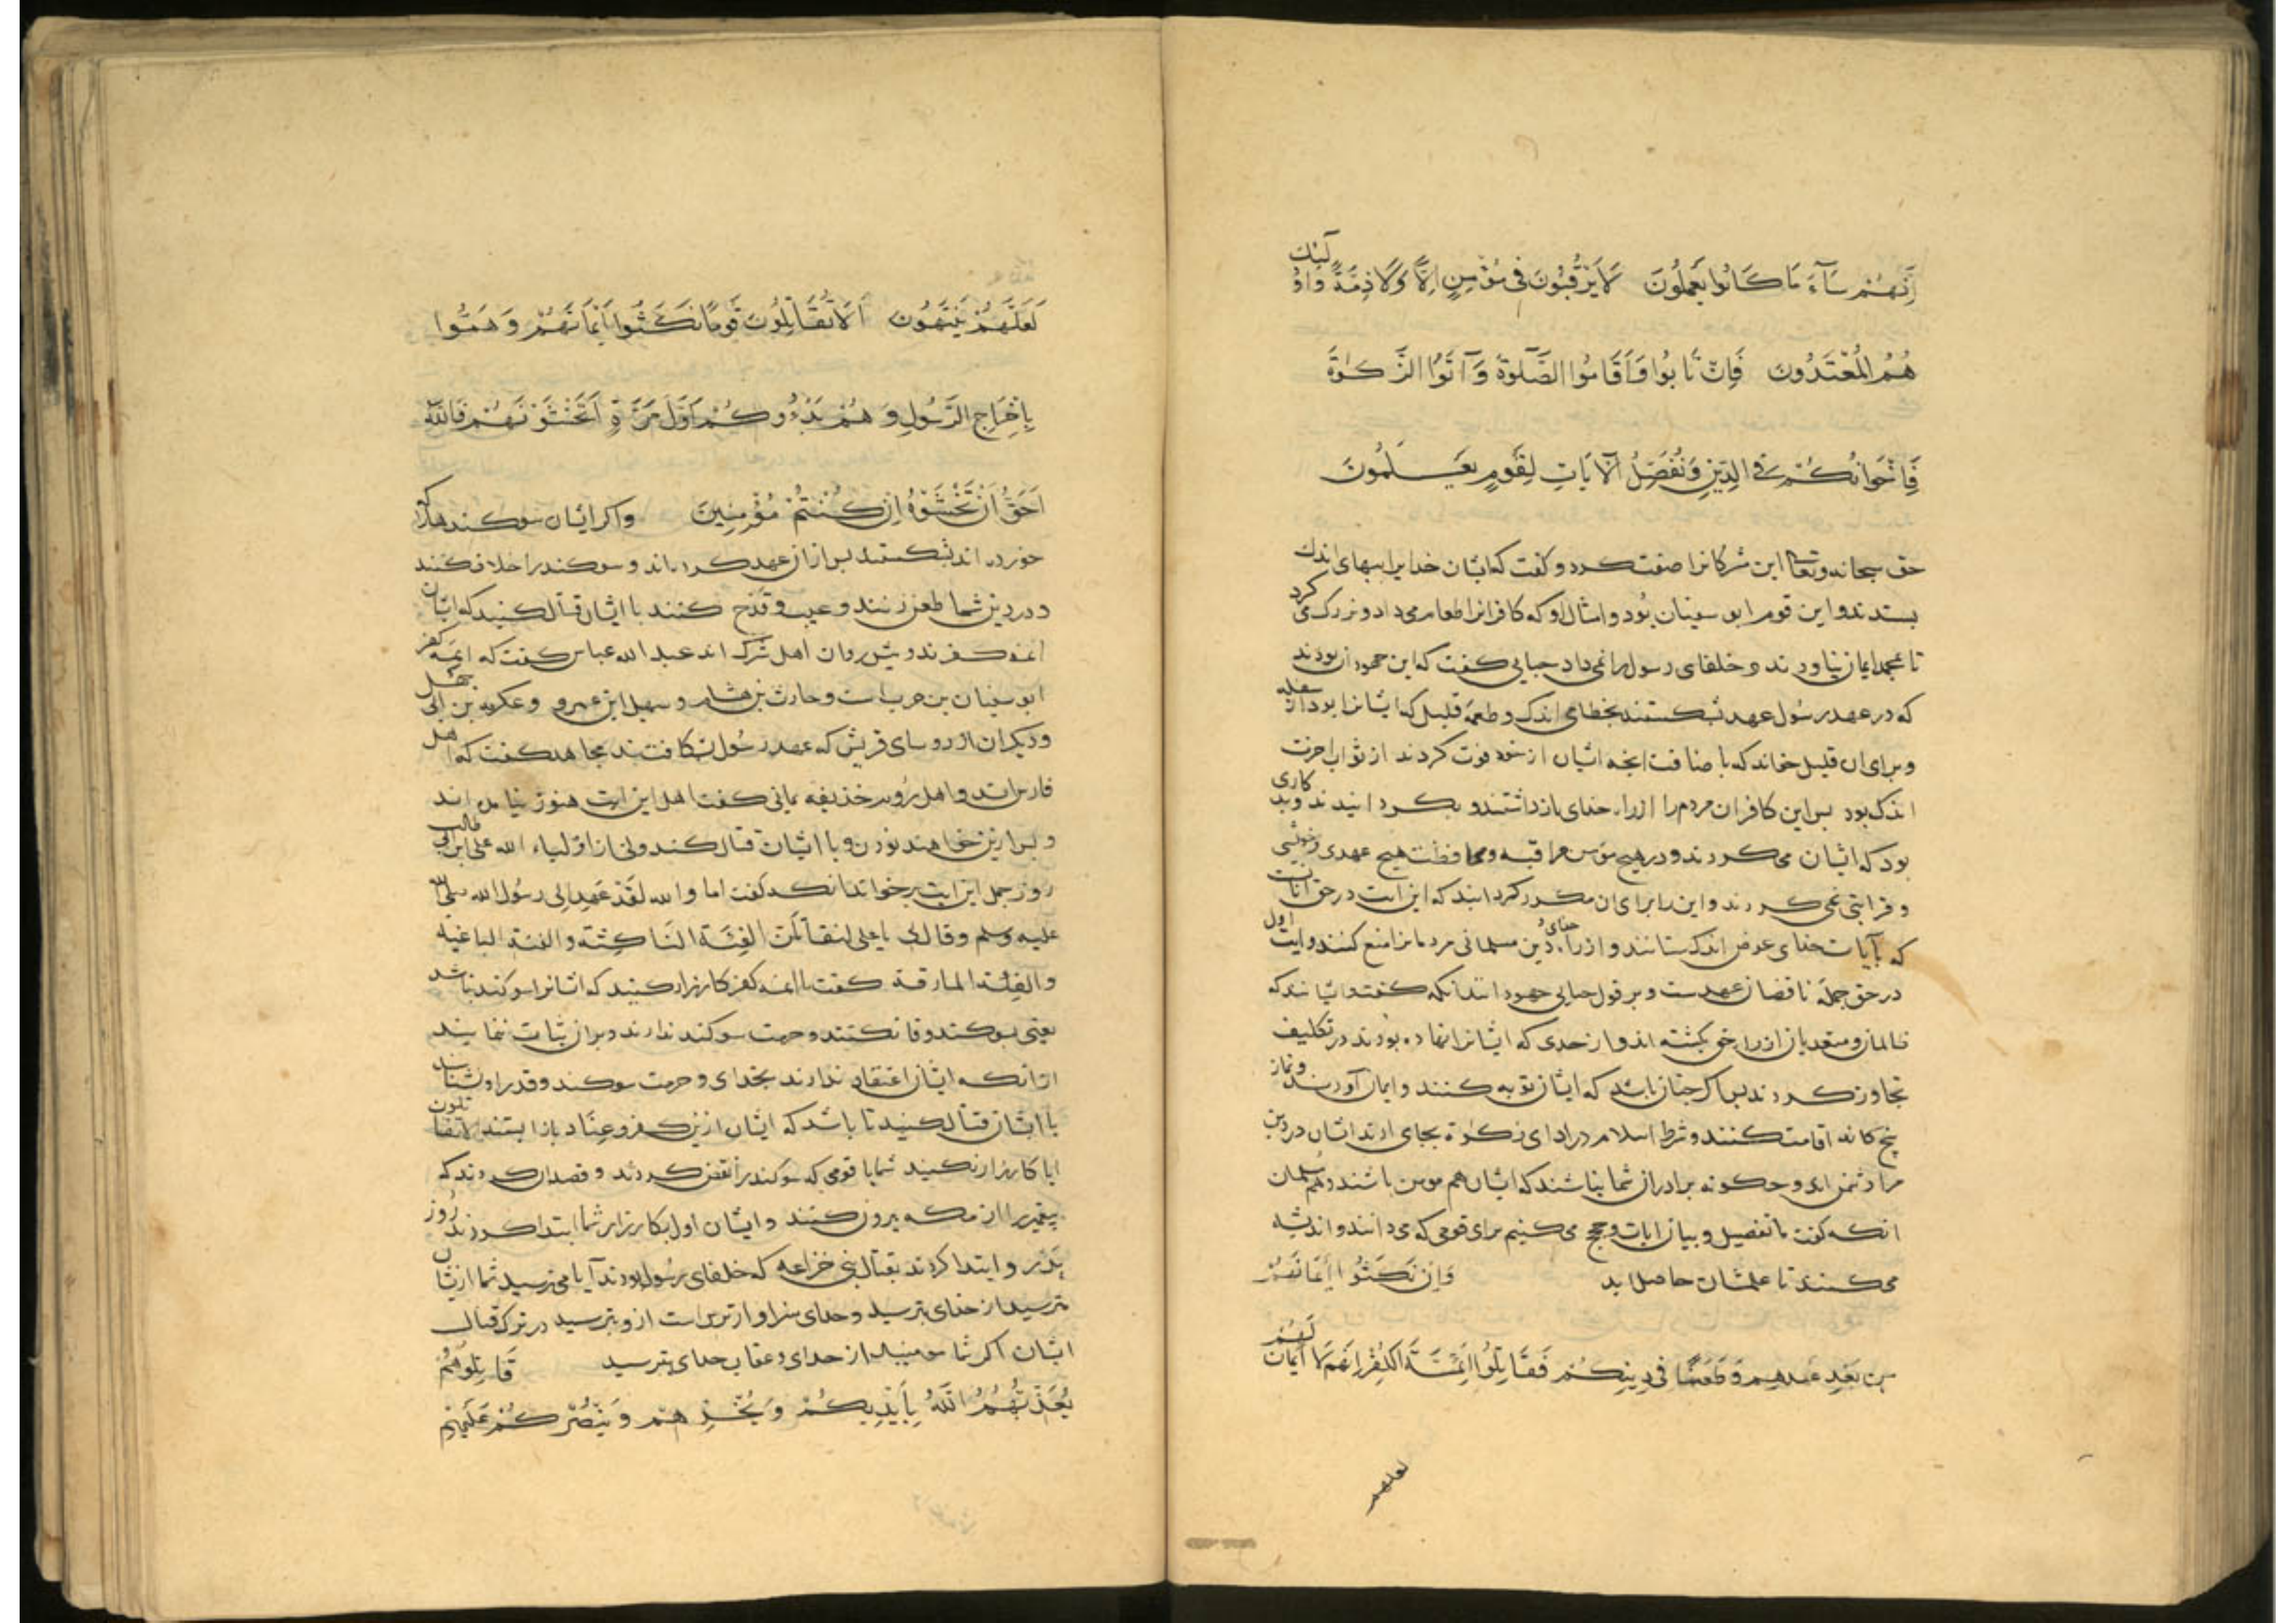 اِنَّهُمْ سَآءَ مَا كَانُوا يَعْمَلُونَ لَا يَرْقُبُونَ فِى مُؤْمِنٍ اِلًّا وَلَا ذِمَّةً وَاُولَئِكَ
هُمُ الْمُعْتَدُونَ فَاِنْ تَابُوا وَاَقَامُوا الصَّلوةَ وَآتَوُا الزَّكوةَ
فَاِخْوَانُكُمْ فِى الدِّينِ وَنُفَصِّلُ الْآيَاتِ لِقَوْمٍ يَعْلَمُونَ
حق سبحانه وتعالی این مشرکانرا صفت کرد و کفت که ایشان خدایرا ببهای اندك
بستدند و این قوم ابو سفیان بود و امثال او که کافرانرا طعام می داد و بزرک می کرد
تا بمحمد ایمان نیاورند و خلفای رسول را نمی داد جبایی کفت که این جهودان بودند
که در عهد رسول عهد بشکستند بحطامی اندک و طعمه قلیل که ایشانرا بود از سفله
و برای ان قلیل خواند که باضافت انچه ایشان از خود فوت کردند از ثواب اخرت
اندک بود بس این کافران مردم را از راه خدای بازداشتند و بکردانیدند و بد کاری
بود که ایشان می کردند و در هیچ مؤمن مراقبه و محافظت هیچ عهدی و خویشی
و قرابتی نمی کردند و این را برای ان مکرر کردانید که این ایت در حق آنانست
که بآیات خدای عوض اندک ستانند و از راه خدای و دین مسلمانی مردمانرا منع کنند و ایت اول
در حق جمله ناقضان عهدست و بر قول جبایی جهودانند انکه کفت و ایشانند که
ظالمان و متعدیان از راه حق بکشته اند و از حدی که ایشانرا نهاده بودند در تکلیف
تجاوز کردند بس اکر چنان باشد که ایشان توبه کنند و ایمان آورند و نماز
پنج کانه اقامت کنند و شرط اسلام در ادای زکوة بجای ارند ایشان در دین
برادران شما باشند که ایشان هم مومن باشند و هم مسلمان
انکه کفت ما تفصیل و بیان ایات و حجج می کنیم برای قومی که می دانند و اندیشه
می کنند تا علمشان حاصل اید وَاِنْ نَكَثُوا اَيْمَانَهُمْ
مِنْ بَعْدِ عَهْدِهِمْ وَطَعَنُوا فِى دِينِكُمْ فَقَاتِلُوا اَئِمَّةَ الْكُفْرِ اِنَّهُمْ لَا اَيْمَانَ لَهُمْ
لعلهم
لَعَلَّهُمْ يَنْتَهُونَ اَلَا تُقَاتِلُونَ قَوْمًا نَكَثُوا اَيْمَانَهُمْ وَهَمُّوا
بِاِخْرَاجِ الرَّسُولِ وَهُمْ بَدَءُوكُمْ اَوَّلَ مَرَّةٍ اَتَخْشَوْنَهُمْ فَاللّٰهُ
اَحَقُّ اَنْ تَخْشَوْهُ اِنْ كُنْتُمْ مُؤْمِنِينَ واکر ایشان سوکندها که
خورده اند بشکستند بس از ان عهد که کرده اند و سوکند را خلاف کنند
و در دین شما طعن زنند و عیب و قدح کنند با ایشان قتال کنید که ایشان
ائمه کفرند و پیش روان اهل شرک اند عبد الله عباس کفت که ائمه کفر
ابو سفیان بن حرب است و حارث بن هشام و سهیل ابن عمرو و عکرمه بن ابی جهل
و دیکران از روسای قریش که عهد رسول بشکافتند مجاهد کفت که اهل
فارس اند و اهل روم حذیفه یمانی کفت اهل این ایت هنوز نیامده اند
و بس ازین خواهند بودن و با ایشان قتال کند ولی از اولیاء الله علی ابن ابی طالب
روز جمل این ایت برخواند انکه کفت اما والله لقد عهد الی رسول الله صلی الله
علیه وسلم وقال لی یا علی لتقاتلن الفئة الناکثة والفئة الباغیة
والفئة المارقة کفت با ائمه کفر کارزار کنید که ایشانرا سوکند نباشد
یعنی بسوکند وفا نکنند و حرمت سوکند ندارند و بران ثبات ننمایند
از انکه ایشان اعتقاد ندارند بخدای و حرمت سوکند و قدر او نشناسند
با ایشان قتال کنید تا باشد که ایشان ازین کفر و عناد باز ایستند الا تقاتلون
ایا کارزار نکنید شما با قومی که سوکند را نقض کردند و قصد ان کردند که
پیغمبر را از مکه بیرون کنند و ایشان اول بکارزار شما ابتدا کردند روز
بدر و ابتدا کردند بقتال بنی خزاعه که خلفای رسول بودند آیا می ترسید شما ازیشان
مترسید از خدای بترسید و خدای سزاوارترست از و بترسید در ترک قتال
ایشان اکر شما مومنید از خدای و عقاب خدای بترسید قَاتِلُوهُمْ
يُعَذِّبْهُمُ اللّٰهُ بِاَيْدِيكُمْ وَيُخْزِهِمْ وَيَنْصُرْكُمْ عَلَيْهِمْ